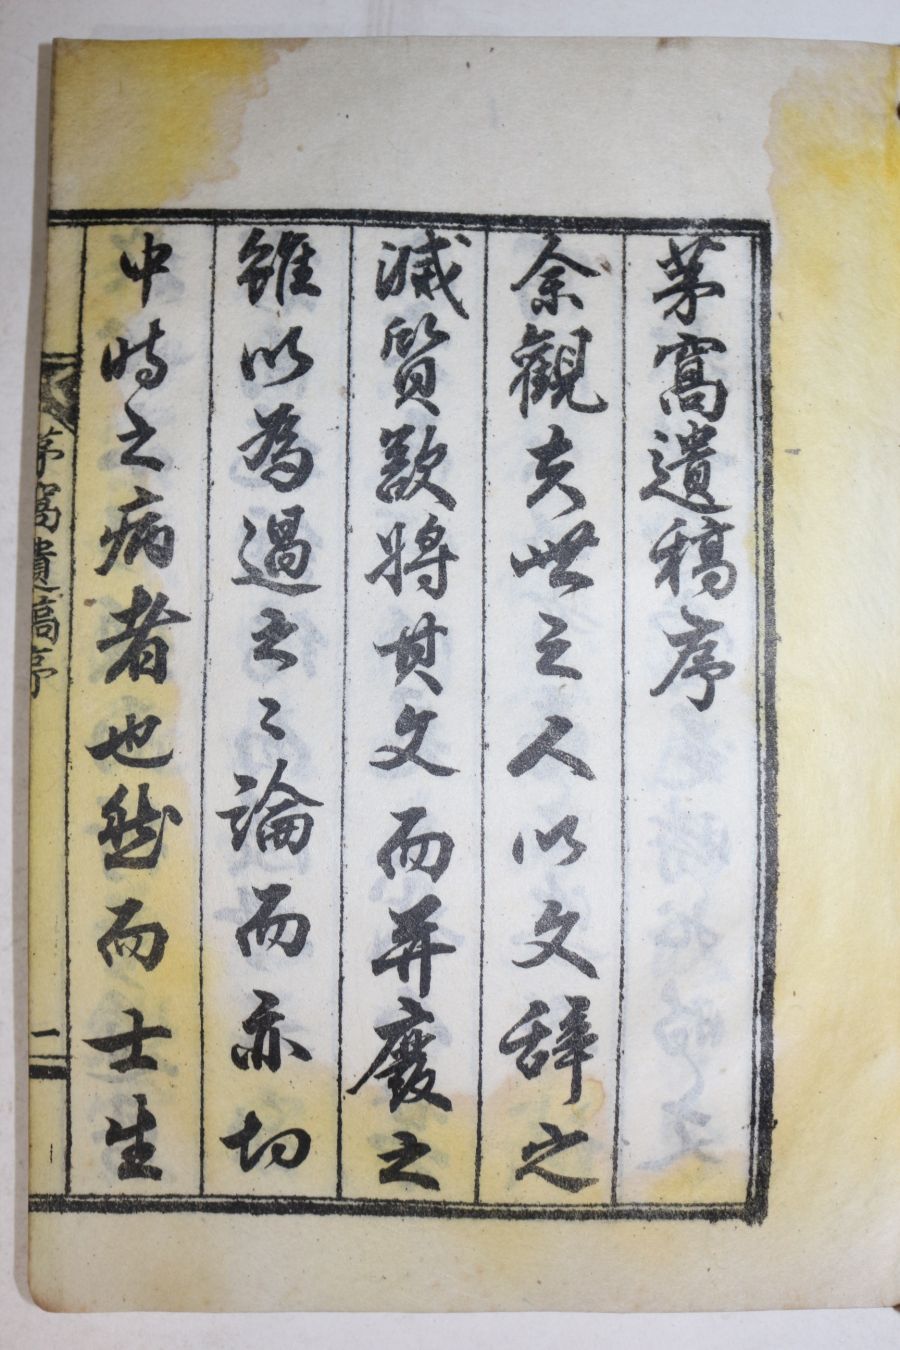 茅窩遺稿序
余觀夫世之人以文辭之
滅質欲將其文而并廢之
雖以爲過正之論而亦切
中時之病者也然而士生
茅窩遺稿序
一